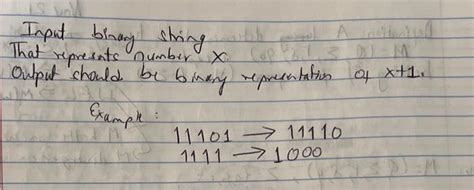 Input binary string
That represents number x
Output should be binary representation of x+1.
Example:
11101 → 11110
1111 → 1000